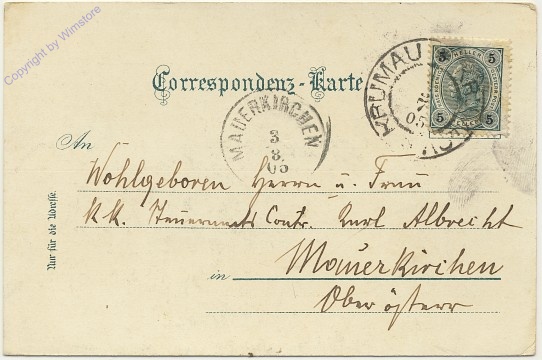 Copyright by Wimstore
Correspondenz-Karte
KRUMAU
05
5 HELLER 5
5 5
MAUERKIRCHEN
3
8
05
An
Wohlgeboren Herrn u. Frau
k.k. Steueramts Contr. Karl Albrecht
in Mauerkirchen
Oberösterr
Nur für die Adresse.